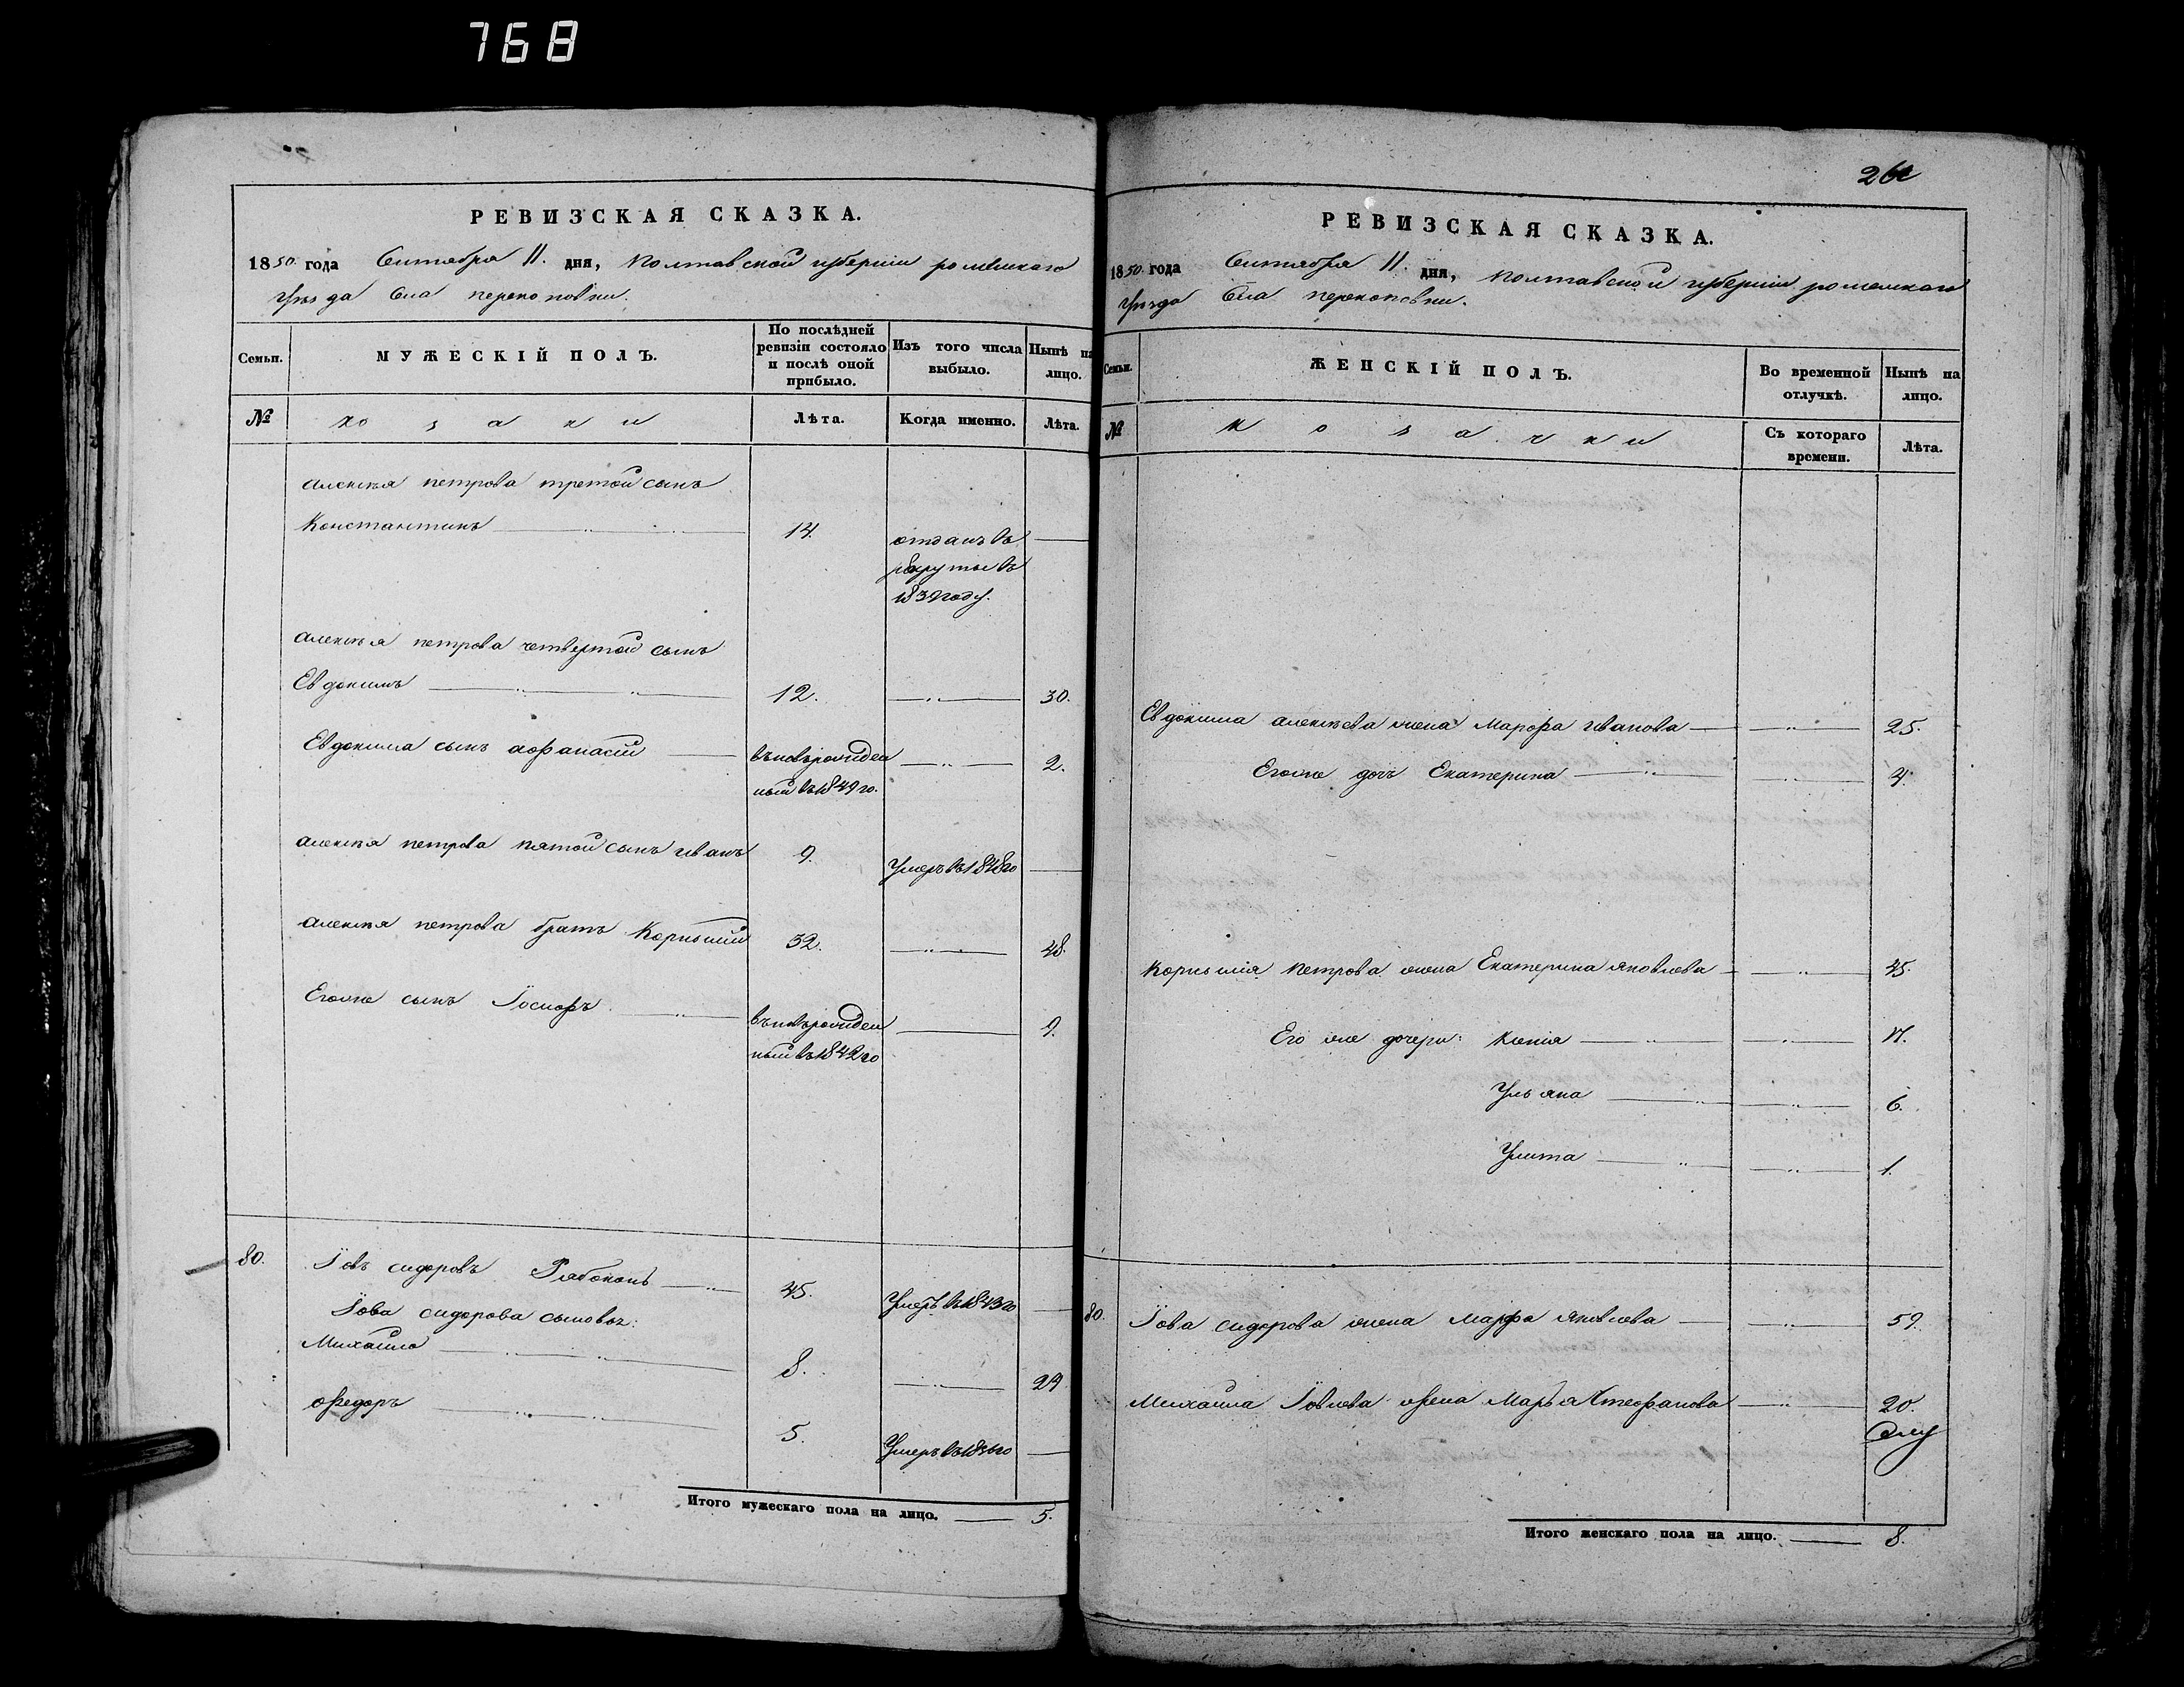 768
РЕВИЗСКАЯ СКАЗКА.
1850. года Сентября 11. дня, Полтавской губернiи роменскаго
уѣзда Села перекоповки.
Семьи.
МУЖЕСКIЙ ПОЛЪ.
По послѣдней ревизiи состояло и послѣ оной прибыло.
Изъ того числа выбыло.
Нынѣ на лицо.
№
козаки
Лѣта.
Когда именно.
Лѣта.
алексѣя петрова третой сынъ
Константинъ 14. отданъ въ
рекруты въ
1839 году.
алексѣя петрова четвертой сынъ
Евдокимъ 12. 30.
Евдокима сынъ афанасiй въновърожден 2.
ный въ 1849 го.
алексѣя петрова пятой сынъ иванъ 9. Умеръ въ 1848 го
алексѣя петрова братъ Корнѣлiй 32. 48.
Егоже сынъ Iосифъ въновърожден 9.
ный въ 1842 го
80. Iовъ сидоровъ Рябоконь 45. Умеръ въ 1843 го
Iова сидорова сыновья:
Михайло 8. 24
Федоръ 5. Умеръ въ 1836 го
Итого мужескаго пола на лицо. 5.
РЕВИЗСКАЯ СКАЗКА.
1850. года Сентября 11. дня, полтавской губернiи роменскаго
уѣзда Села перекоповки.
Семьи.
ЖЕНСКIЙ ПОЛЪ.
Во временной отлучкѣ.
Нынѣ на лицо.
№
козачки
Съ котораго времени.
Лѣта.
Евдокима алексѣева жена Марфа иванова 25.
Егоже дочь Екатерина 4.
Корнѣлiя петрова жена Екатерина яковлева 45.
Его же дочери: Ксенiя 17.
Ульяна 6.
Улита 1.
80. Iова сидорова жена Марфа яковлева 59.
Михайла Iовлева жена Марья Стефанова 20.
Итого женскаго пола на лицо. 8.